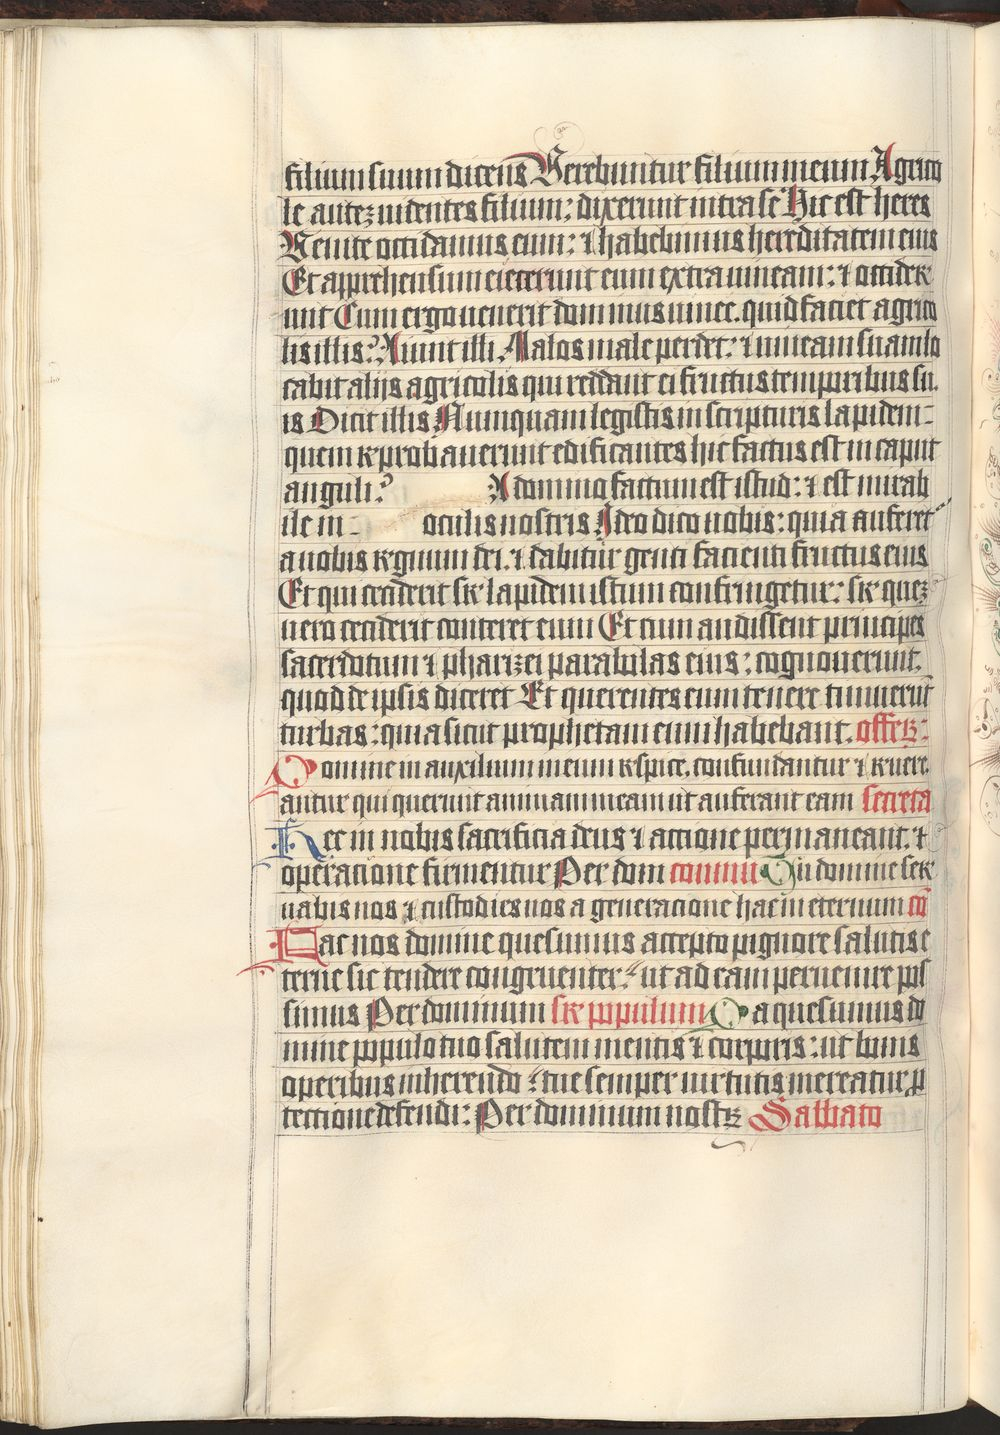 filium suum dicens Verebuntur filium meum Agrico
le autez uidentes filium: dixerunt intra se Hic est heres
Venite occidamus eum: ⁊ habebimus hereditatem eius
Et apprehensum eiecerunt eum extra uineam: ⁊ occider
unt Cum ergo uenerit dominus uinee. quid faciet agrico
lis illis? Aiunt illi Malos male perdet: ⁊ uineam suam lo
cabit alijs agricolis qui reddant ei fructus temporibus su.
is Dicit illis Numquam legistis in scripturis lapidem-
quem reprobauerunt edificantes hic factus est in caput
anguli? A domino factum est istud: ⁊ est mirab
ile in - oculis nostris Ideo dico uobis: quia auferet᷑
a uobis regnum dei. ⁊ dabitur genti facienti fructus eius
Et qui ceciderit sr lapidem istum confringetur: sr quez
uero ceciderit conteret eum Et cum audissent principes
sacerdotum ⁊ pharizei parabolas eius: cognouerunt.
quod de ipsis diceret Et querentes eum tenere timuerūt
turbas: quia sicut prophetam eum habebant. offerz:
Domine in auxilium meum respice. confundantur ⁊ reuere.
antur qui querunt animam meam ut auferant eam secreta
Hec in nobis sacrificia deus ⁊ accione permaneant. ⁊
operacione firmentur Per dom commu Tu domine ser
uabis nos ⁊ custodies nos a generacione hac in eternum cō
Fac nos domine quesumus accepto pignore salutis e
terne sic tendere congruenter: ut ad eam peruenire pos
simus Per dominum sr populum Da quesumus do
mine populo tuo salutem mentis ⁊ corporis: ut bonis
operibus inherendo : tue semper uirtutis mereatur ꝓ
tectione defendi: Per dominum nostrz Sabbato